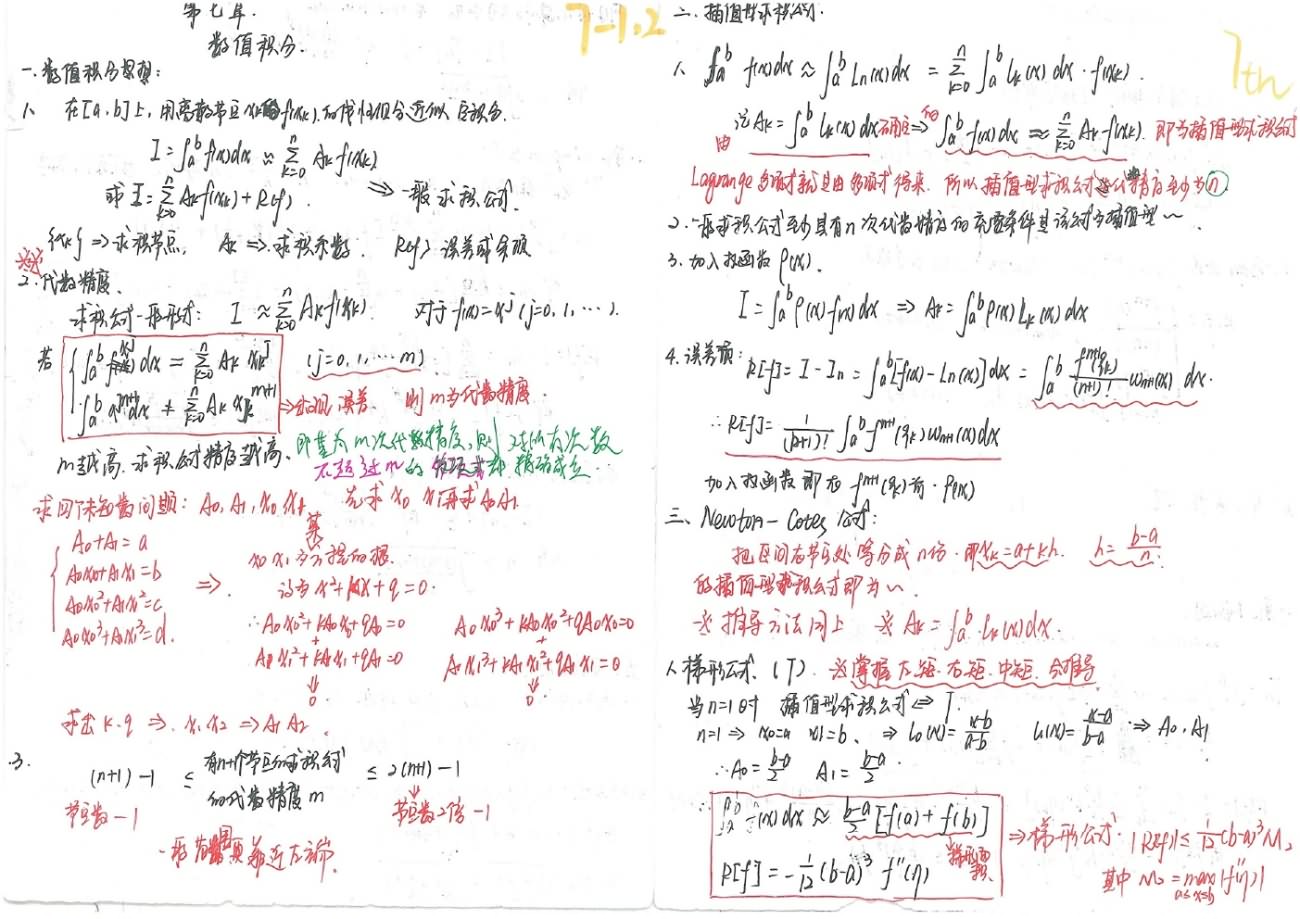 第七章.
数值积分.
7-1,2
一.数值积分思想:
1. 在[a,b]上,用离散节点xk的f(xk)的线性组合近似定积分.
I=∫_a^b f(x)dx ≈ Σ_{k=0}^n Ak f(xk)
或 I=Σ_{k=0}^n Ak f(xk)+R(f). ⇒一般求积公式.
{xk}⇒求积节点, Ak⇒求积系数. R(f)⇒误差或余项
2.代数精度.
求积公式一般形式: I≈Σ_{k=0}^n Ak f(xk) 对于f(x)=x^j (j=0,1,…).
若 { ∫_a^b x^j dx = Σ_{k=0}^n Ak xk^j (j=0,1,…m)
∫_a^b x^{m+1} dx ≠ Σ_{k=0}^n Ak xk^{m+1} ⇒出现误差. 则m为代数精度.
m越高,求积公式精度越高. 即某为m次代数精度,则对所有次数
不超过m的多项式都精确成立.
求四个未知数问题: A0, A1, x0, x1. 先求x0 x1再求A0A1.
{ A0+A1=a
A0x0+A1x1=b
A0x0²+A1x1²=c
A0x0³+A1x1³=d.
⇒ x0 x1为某方程的根.
设为x²+kx+q=0.
∴A0x0²+kA0x0+qA0=0 A0x0³+kA0x0²+qA0x0=0
+ +
A1x1²+kA1x1+qA1=0 A1x1³+kA1x1²+qA1x1=0
⇓ ⇓
0 0
求出k.q ⇒ x1.x2 ⇒A1 A2.
3. (n+1)-1 ≤ 有n+1个节点的求积公式的代数精度m ≤ 2(n+1)-1
节点数-1 节点数2倍-1
靠近左端.
二.插值型求积公式
7th
1. ∫_a^b f(x)dx≈∫_a^b Ln(x)dx = Σ_{k=0}^n ∫_a^b lk(x)dx·f(xk).
由 记Ak=∫_a^b lk(x)dx 确定⇒的 ∫_a^b f(x)dx≈Σ_{k=0}^n Ak f(xk). 即为插值型求积公式
Lagrange多项式就是由多项式得来. 所以插值型求积公式代数精度至少为n.
2.一般求积公式至少具有n次代数精度的充要条件是该公式为插值型~.
3.加入权函数ρ(x).
I=∫_a^b ρ(x)f(x)dx ⇒ Ak=∫_a^b ρ(x)lk(x)dx
4.误差项: R[f]=I-In=∫_a^b[f(x)-Ln(x)]dx = ∫_a^b f^{n+1}(ξk)/(n+1)! ωn+1(x) dx.
∴R[f]= 1/(n+1)! ∫_a^b f^{n+1}(ξk)ωn+1(x)dx
加入权函数即在f^{n+1}(ξk)前·ρ(x)
三、Newton-Cotes公式:
把区间在节点处等分成n份.即xk=a+kh. h=(b-a)/n.
的插值型求积公式即为~.
※推导方法同上 ※Ak=∫_a^b lk(x)dx.
1.梯形公式.(T). ※掌握左矩.右矩.中矩.会推导
当n=1时 插值型求积公式⇔T.
n=1⇒x0=a x1=b. ⇒l0(x)=(x-b)/(a-b) l1(x)=(x-a)/(b-a) ⇒A0,A1
∴A0=(b-a)/2 A1=(b-a)/2.
∴ ∫_a^b f(x)dx≈(b-a)/2 [f(a)+f(b)] 梯形面积.
R[f]=-1/12(b-a)³f''(η)
⇒梯形公式.|R(f)|≤1/12(b-a)³M2
其中M2=max_{a≤x≤b}|f''(η)|